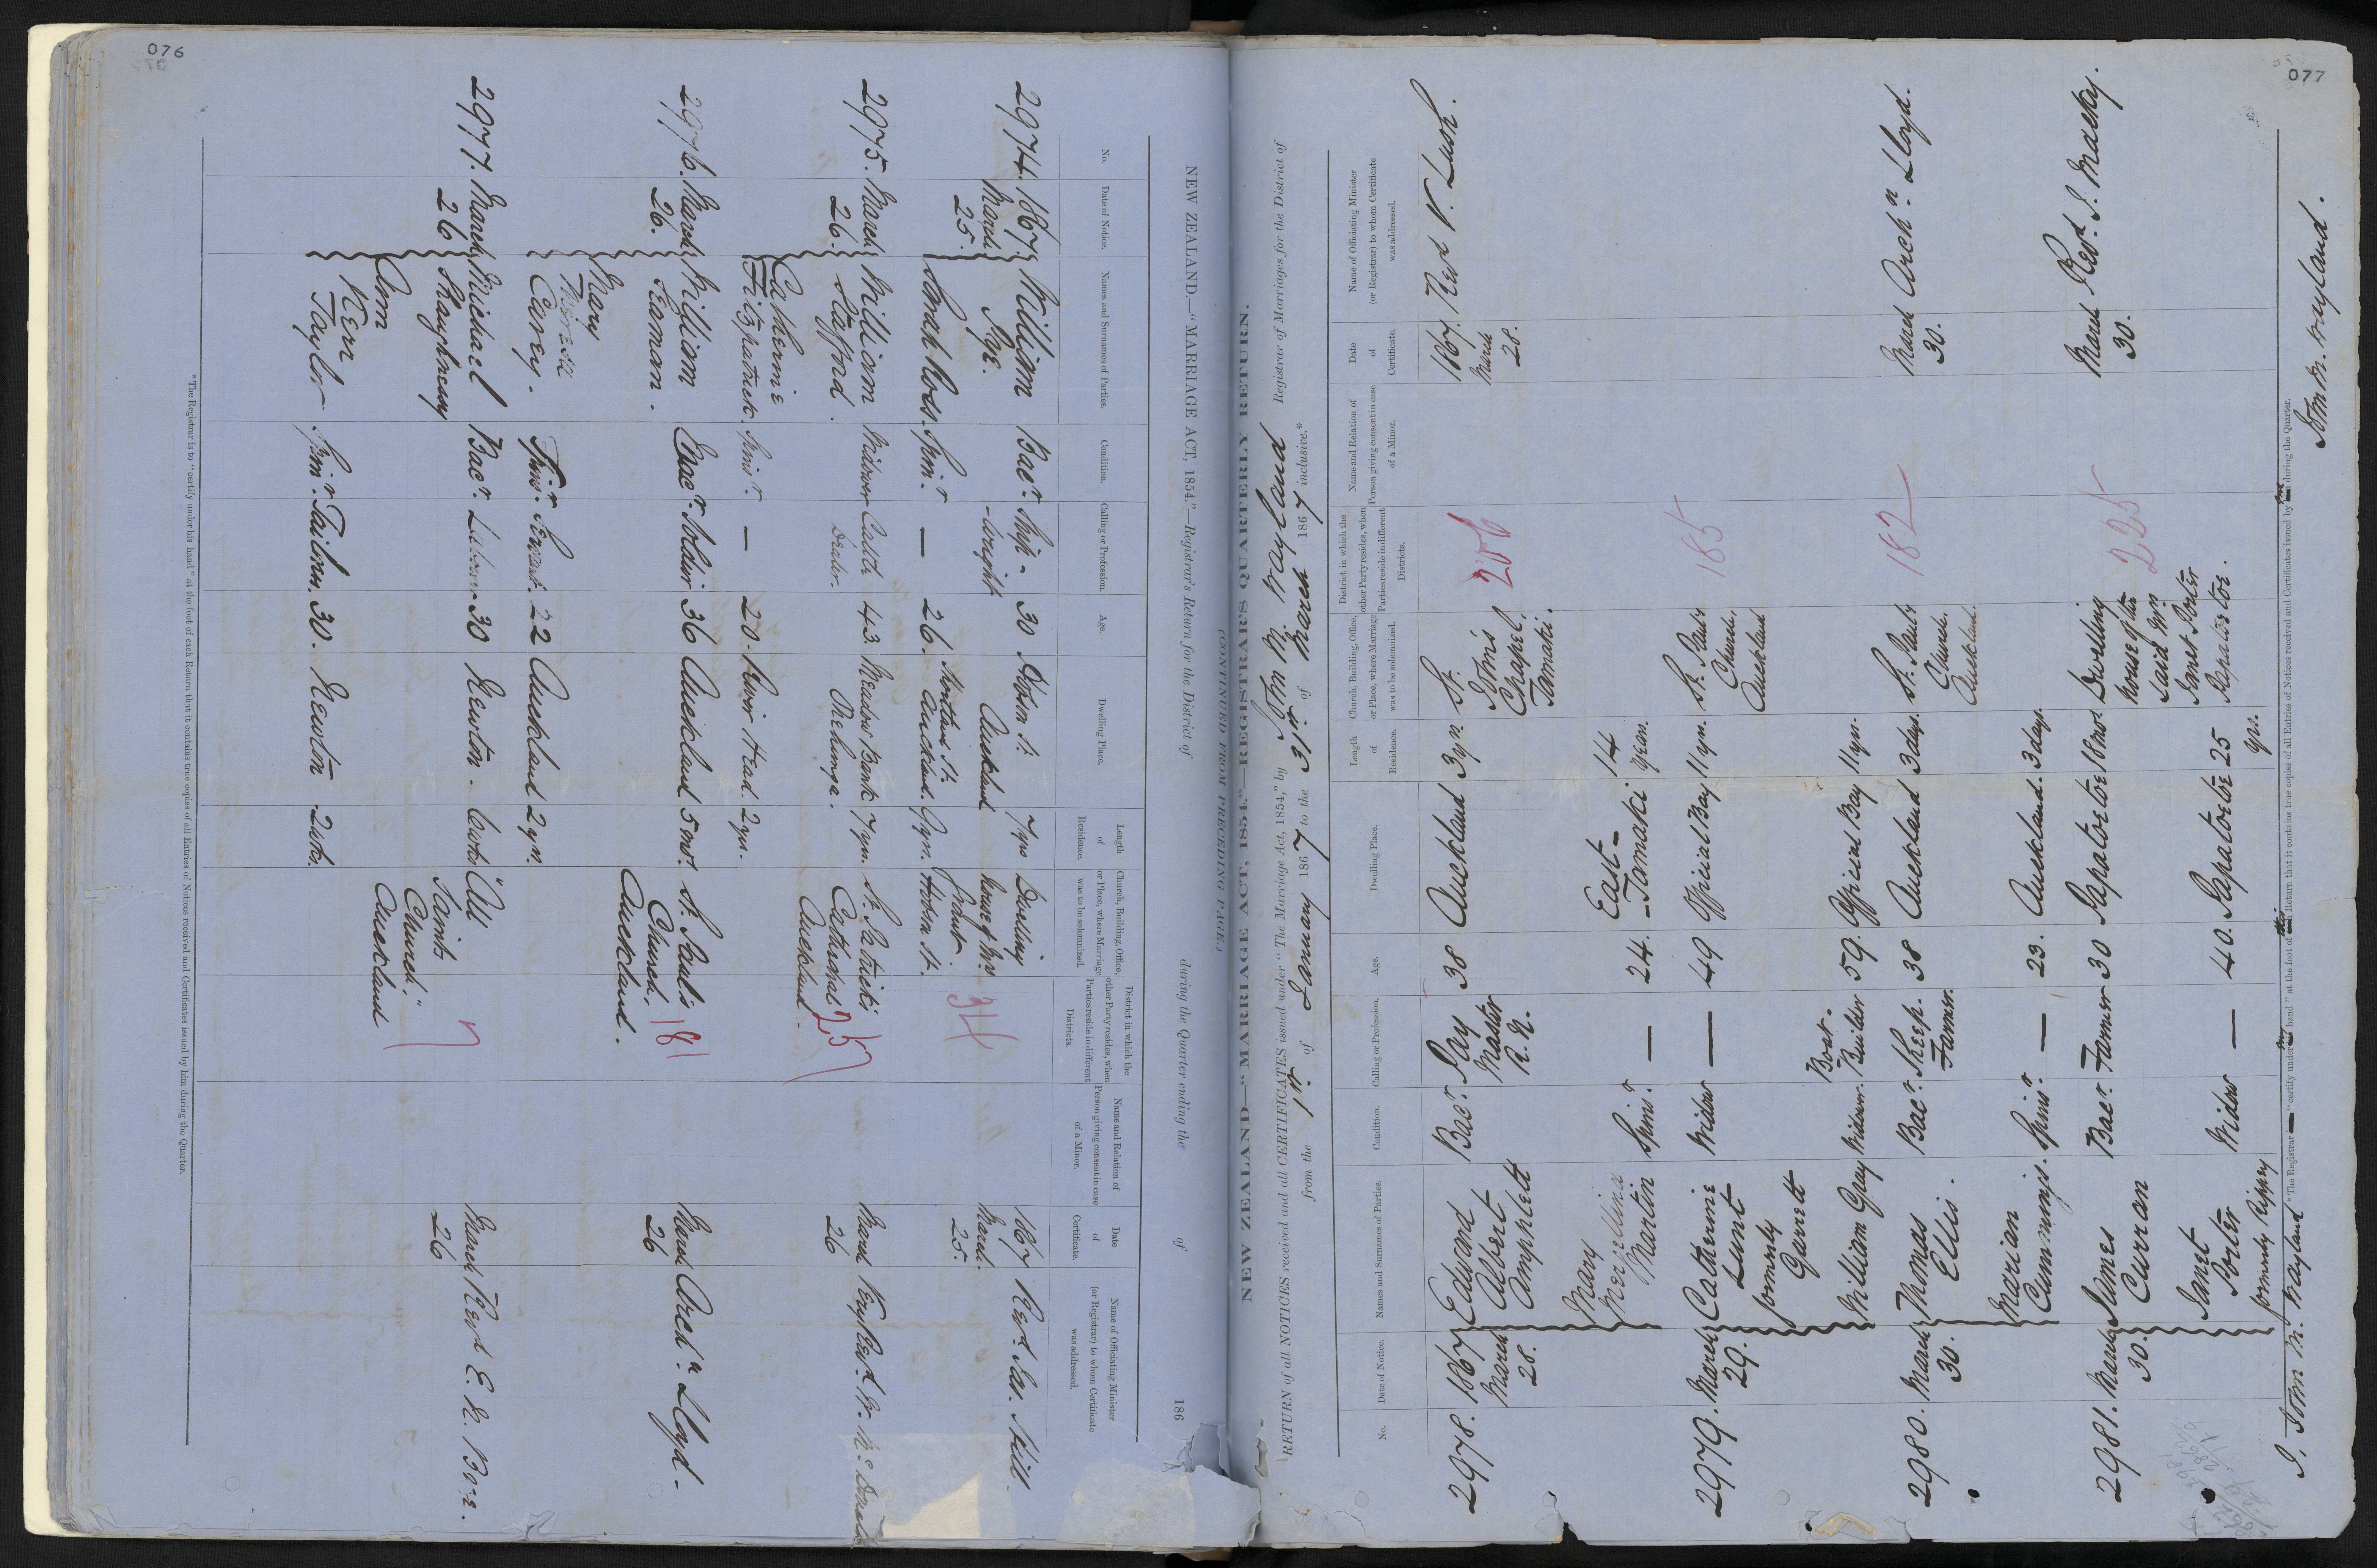 076
NEW ZEALAND.—"MARRIAGE ACT, 1854."—Registrar's Return for the District of during the Quarter ending the of 186
No. Date of Notice. Names and Surnames of Parties. Condition. Calling or Profession. Age. Dwelling Place. Length of Residence. Church, Building, Office, or Place, where Marriage was to be solemnized. District in which the other Party resides, when Parties reside in different Districts. Name and Relation of Person giving consent in case of a Minor. Date of Certificate. Name of Officiating Minister (or Registrar) to whom Certificate was addressed.
2974. 1867 William Bacr. Ship- 30 Hobson St. 7 yrs Dwelling 1867 Revd. Jas. Hill.
March Pye. -wright Auckland house of Mr 34 March
25. 25.
Sarah Ross. Spinr — 26. Auckland. 9 yrs. Hobson St.
2975. March William Widower Cattle 43 Meadow Bank 7 yrs. St. Patrick's March Very Revd. W. McDonald
26. Stafford. Dealer. Remuera. Cathedral 257 26
Auckland.
Catherine
Fitzpatrick. Spinr. — 20. River Head. 2 yrs.
2976. March William Bacr. Soldier 36 Auckland 5 mos. St. Paul's 181 March Archn Lloyd.
26. Seaman. Church, 26
Auckland.
Mary
Theresa
Carey. Spinr. Servant. 22 Auckland 2 yrs.
2977. March Michael Bacr. Laborer 30 Newton. "All 7 March Revd E. H.
26 Shaughnessy Saints 26
Church,"
Auckland
Ann
Kerr
Taylor Spinr. Tailress. 30. Newton 2 wks.
*The Registrar is to "certify under his hand" at the foot of each Return that it contains true copies of all Entries of Notices received and Certificates issued by him during the Quarter.
077
(CONTINUED FROM PRECEDING PAGE.)
NEW ZEALAND—"MARRIAGE ACT, 1854."—REGISTRAR'S QUARTERLY RETURN.
RETURN of all NOTICES received and all CERTIFICATES issued under "The Marriage Act, 1854," by John M. Wayland Registrar of Marriages for the District of
from the 1st. of January 1867 to the 31st. of March 1867 inclusive.*
No. Date of Notice. Names and Surnames of Parties. Condition. Calling or Profession. Age. Dwelling Place. Length of Residence. Church, Building, Office, or Place, where Marriage was to be solemnized. District in which the other Party resides, when Parties reside in different Districts. Name and Relation of Person giving consent in case of a Minor. Date of Certificate. Name of Officiating Minister (or Registrar) to whom Certificate was addressed.
2978. 1867 Edward Bacr. Pay 38 Auckland 3 yrs. St. 206 1867 Revd V. Lush.
March Albert Master John's March
28. Amphlett R.N. Chapel, 28.
Tamaki.
Mary East- 14
Martin Spinr — 24. -Tamaki. years.
2979. March Catherine Widow — 49 Official Bay 11 yrs. St. Paul's 185
29. Lunt Church.
formerly Auckland
Garrett
William Gray Widower. Boat-Builder 59. Official Bay 11 yrs.
2980. March Thomas Bacr. Sheep 38 Auckland 3 days. St. Paul's 182 March Archn Lloyd.
30. Ellis. Farmer. Church. 30.
Auckland.
Marian
Cummings. Spinr — 23. Auckland. 3 days.
2981. March James Bacr. Farmer 30 Papatoetoe 18 mos. Dwelling 225 March Revd. J. Macky.
30. Curran house of the 30.
said Mrs.
Janet Porter
Papatoetoe.
Janet
Porter Widow — 40. Papatoetoe 25
formerly Kippy yrs.
I, John M. Wayland *The Registrar "certify under my hand" at the foot of this Return that it contains true copies of all Entries of Notices received and Certificates issued by me during the Quarter.
John M. Wayland.